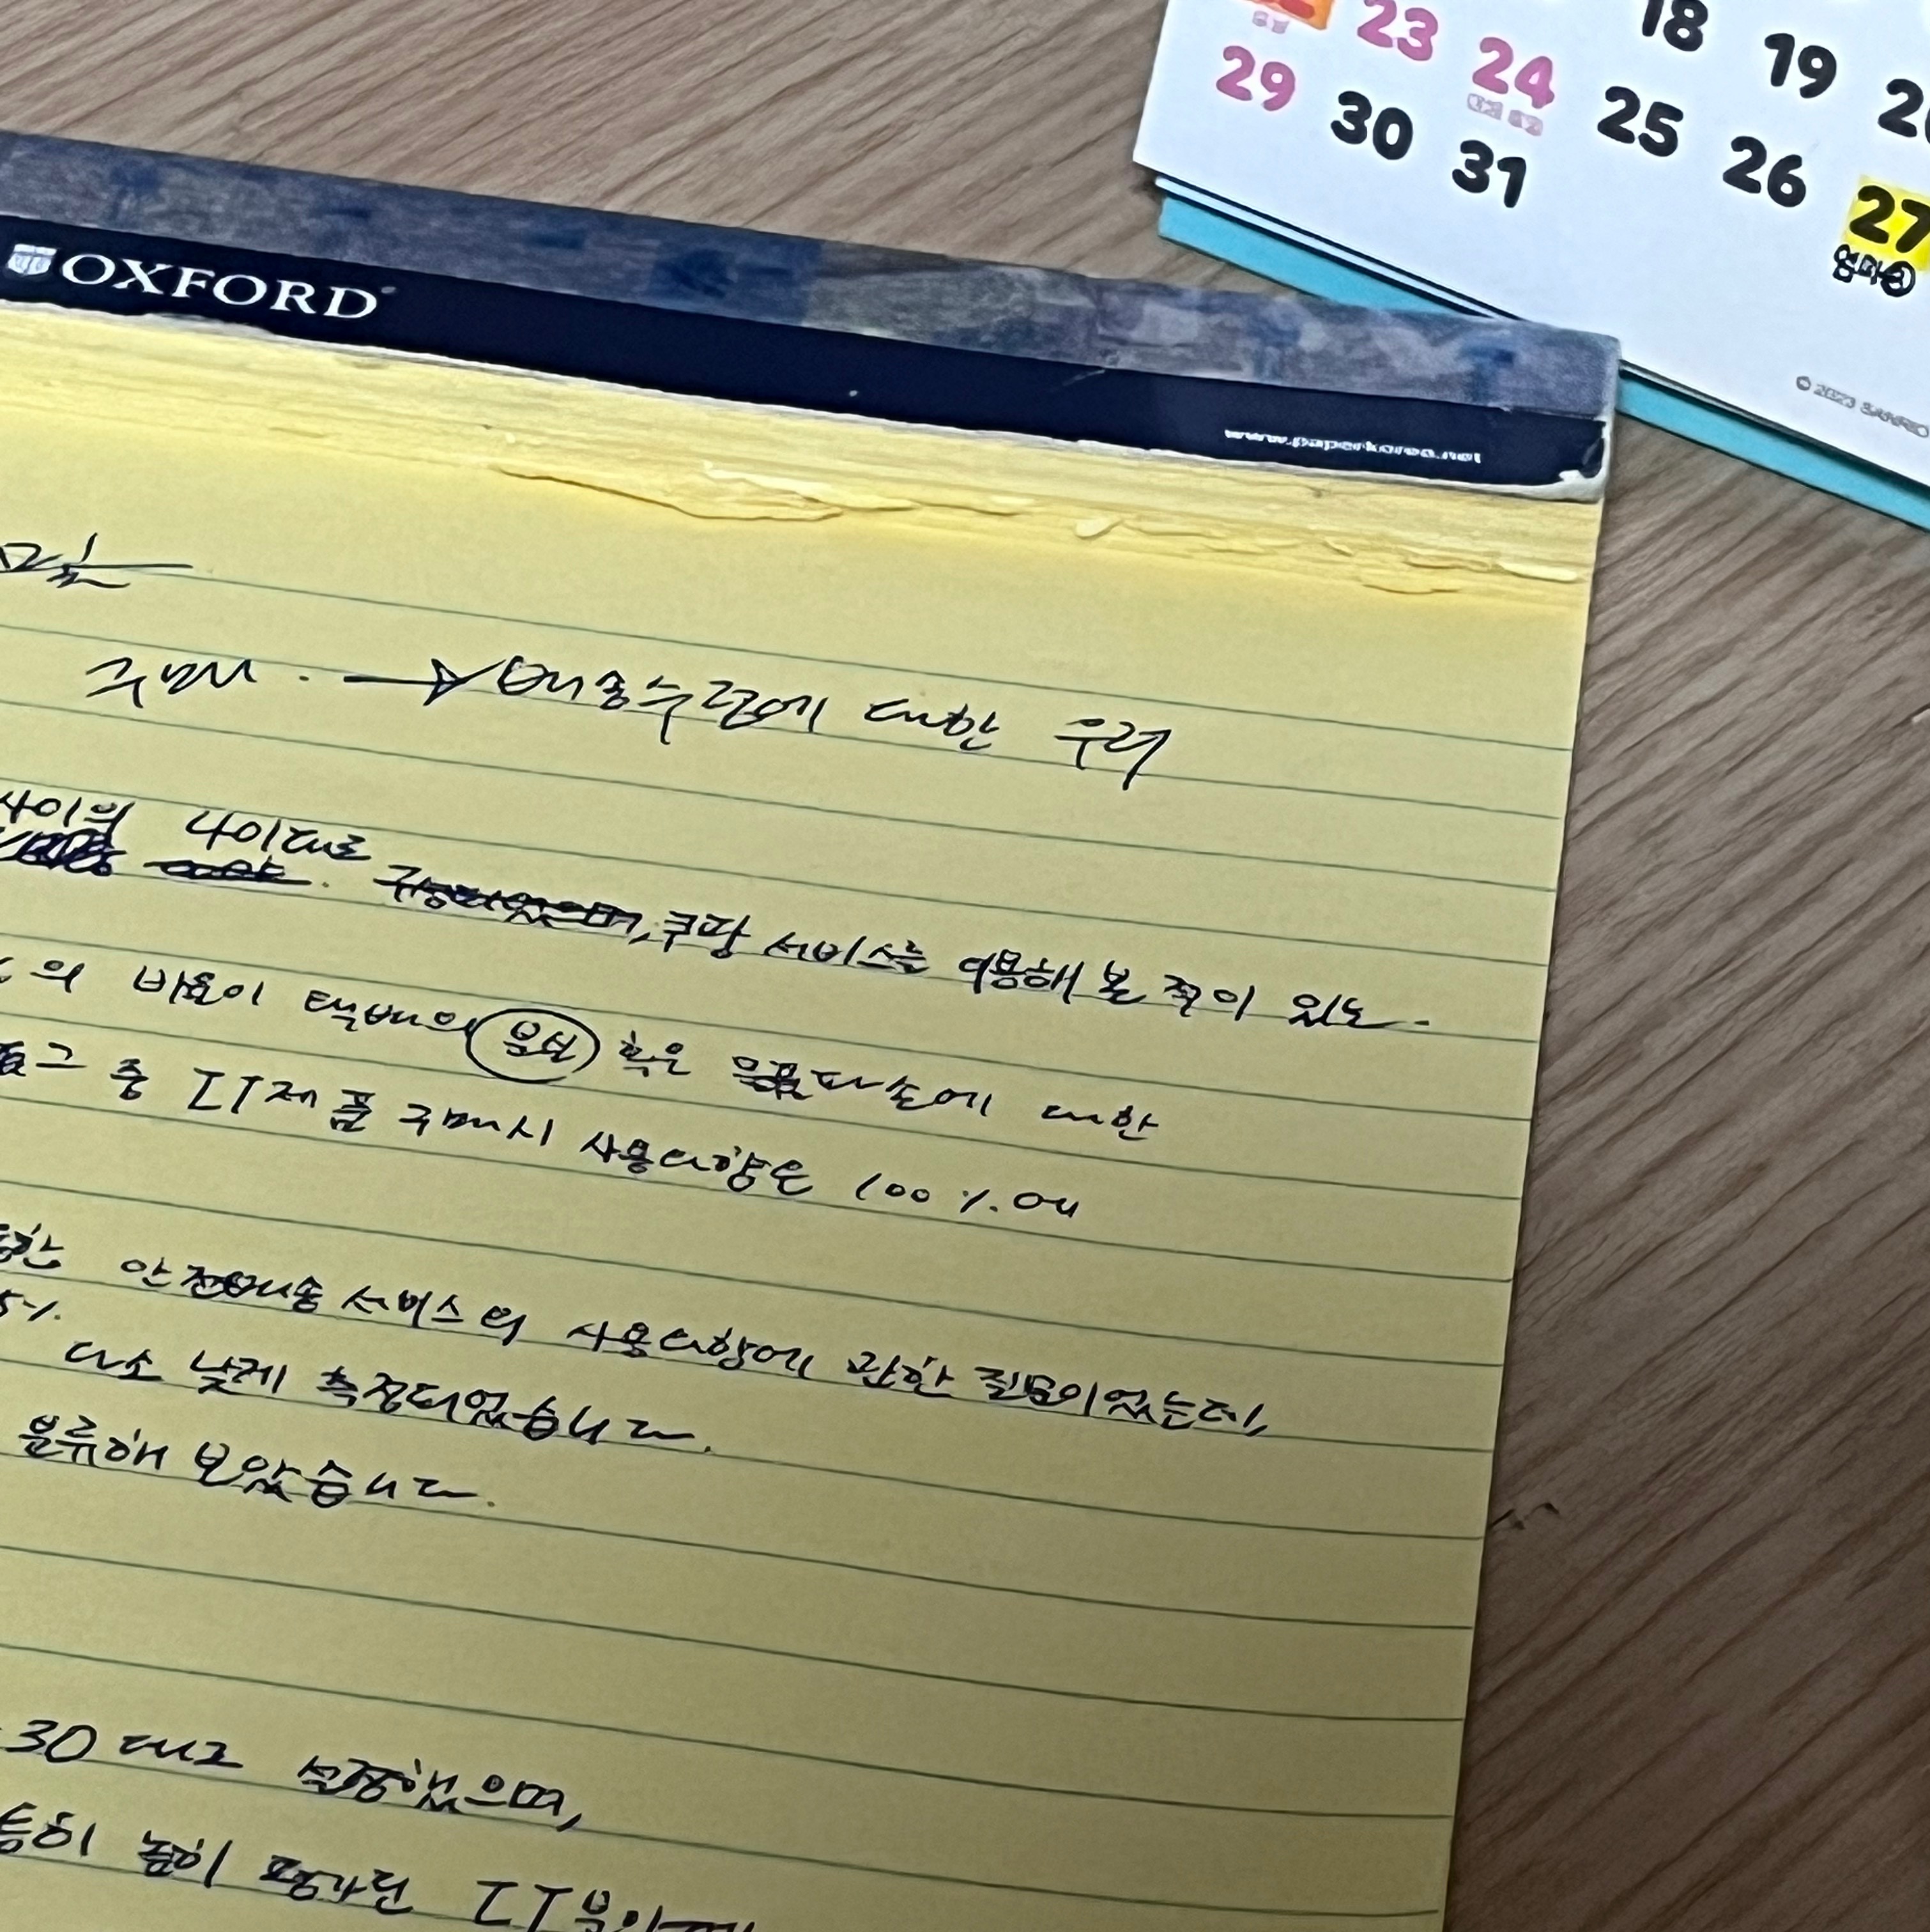 23 24 18 19
29 30 31 25 26 27
OXFORD
www.paperkorea.net
구매시. → 배송수령에 대한 우려
사이의 나이대로
쿠팡 서비스를 이용해 본 적이 있는
의 비율이 택배의 분실 혹은 물품파손에 대한
그 중 IT제품 구매시 사용의향은 100%에
안전배송 서비스의 사용의향에 관한 질문이었는데,
5%. 다소 낮게 측정되었습니다.
분류해 보았습니다.
30대로 설정했으며,
특히 높이 평가된 IT